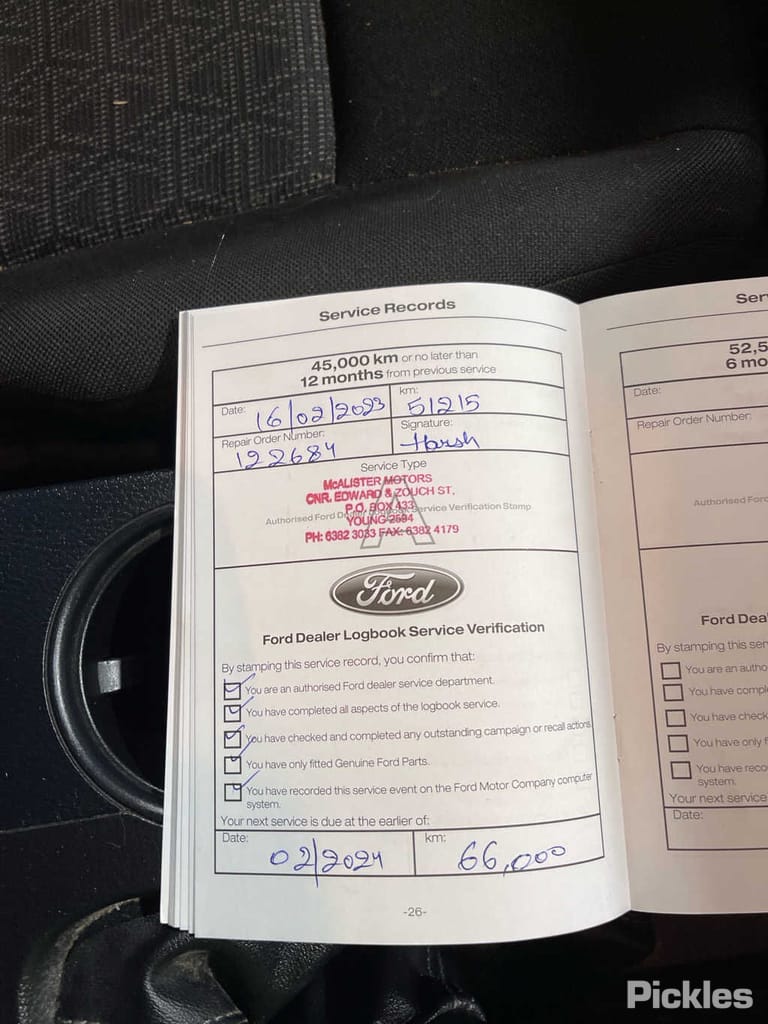 Service Records
45,000 km or no later than
12 months from previous service
Date: 16/02/2023
km: 51215
Repair Order Number: 122684
Signature: Harsh
Service Type
A
McALISTER MOTORS
CNR. EDWARD & ZOUCH ST,
P.O. BOX 433
Authorised Ford Dealer Logbook Service Verification Stamp
YOUNG 2594
PH: 6382 3033 FAX: 6382 4179
Ford
Ford Dealer Logbook Service Verification
By stamping this service record, you confirm that:
You are an authorised Ford dealer service department.
You have completed all aspects of the logbook service.
You have checked and completed any outstanding campaign or recall actions
You have only fitted Genuine Ford Parts.
You have recorded this service event on the Ford Motor Company computer
system.
Your next service is due at the earlier of:
Date: 02/2024
km: 66,000
-26-
Ser
52,5
6 mo
Date:
Repair Order Number:
Authorised Ford
Ford Dea
By stamping this ser
You are an autho
You have compl
You have check
You have only f
You have reco
system.
Your next service
Date:
Pickles